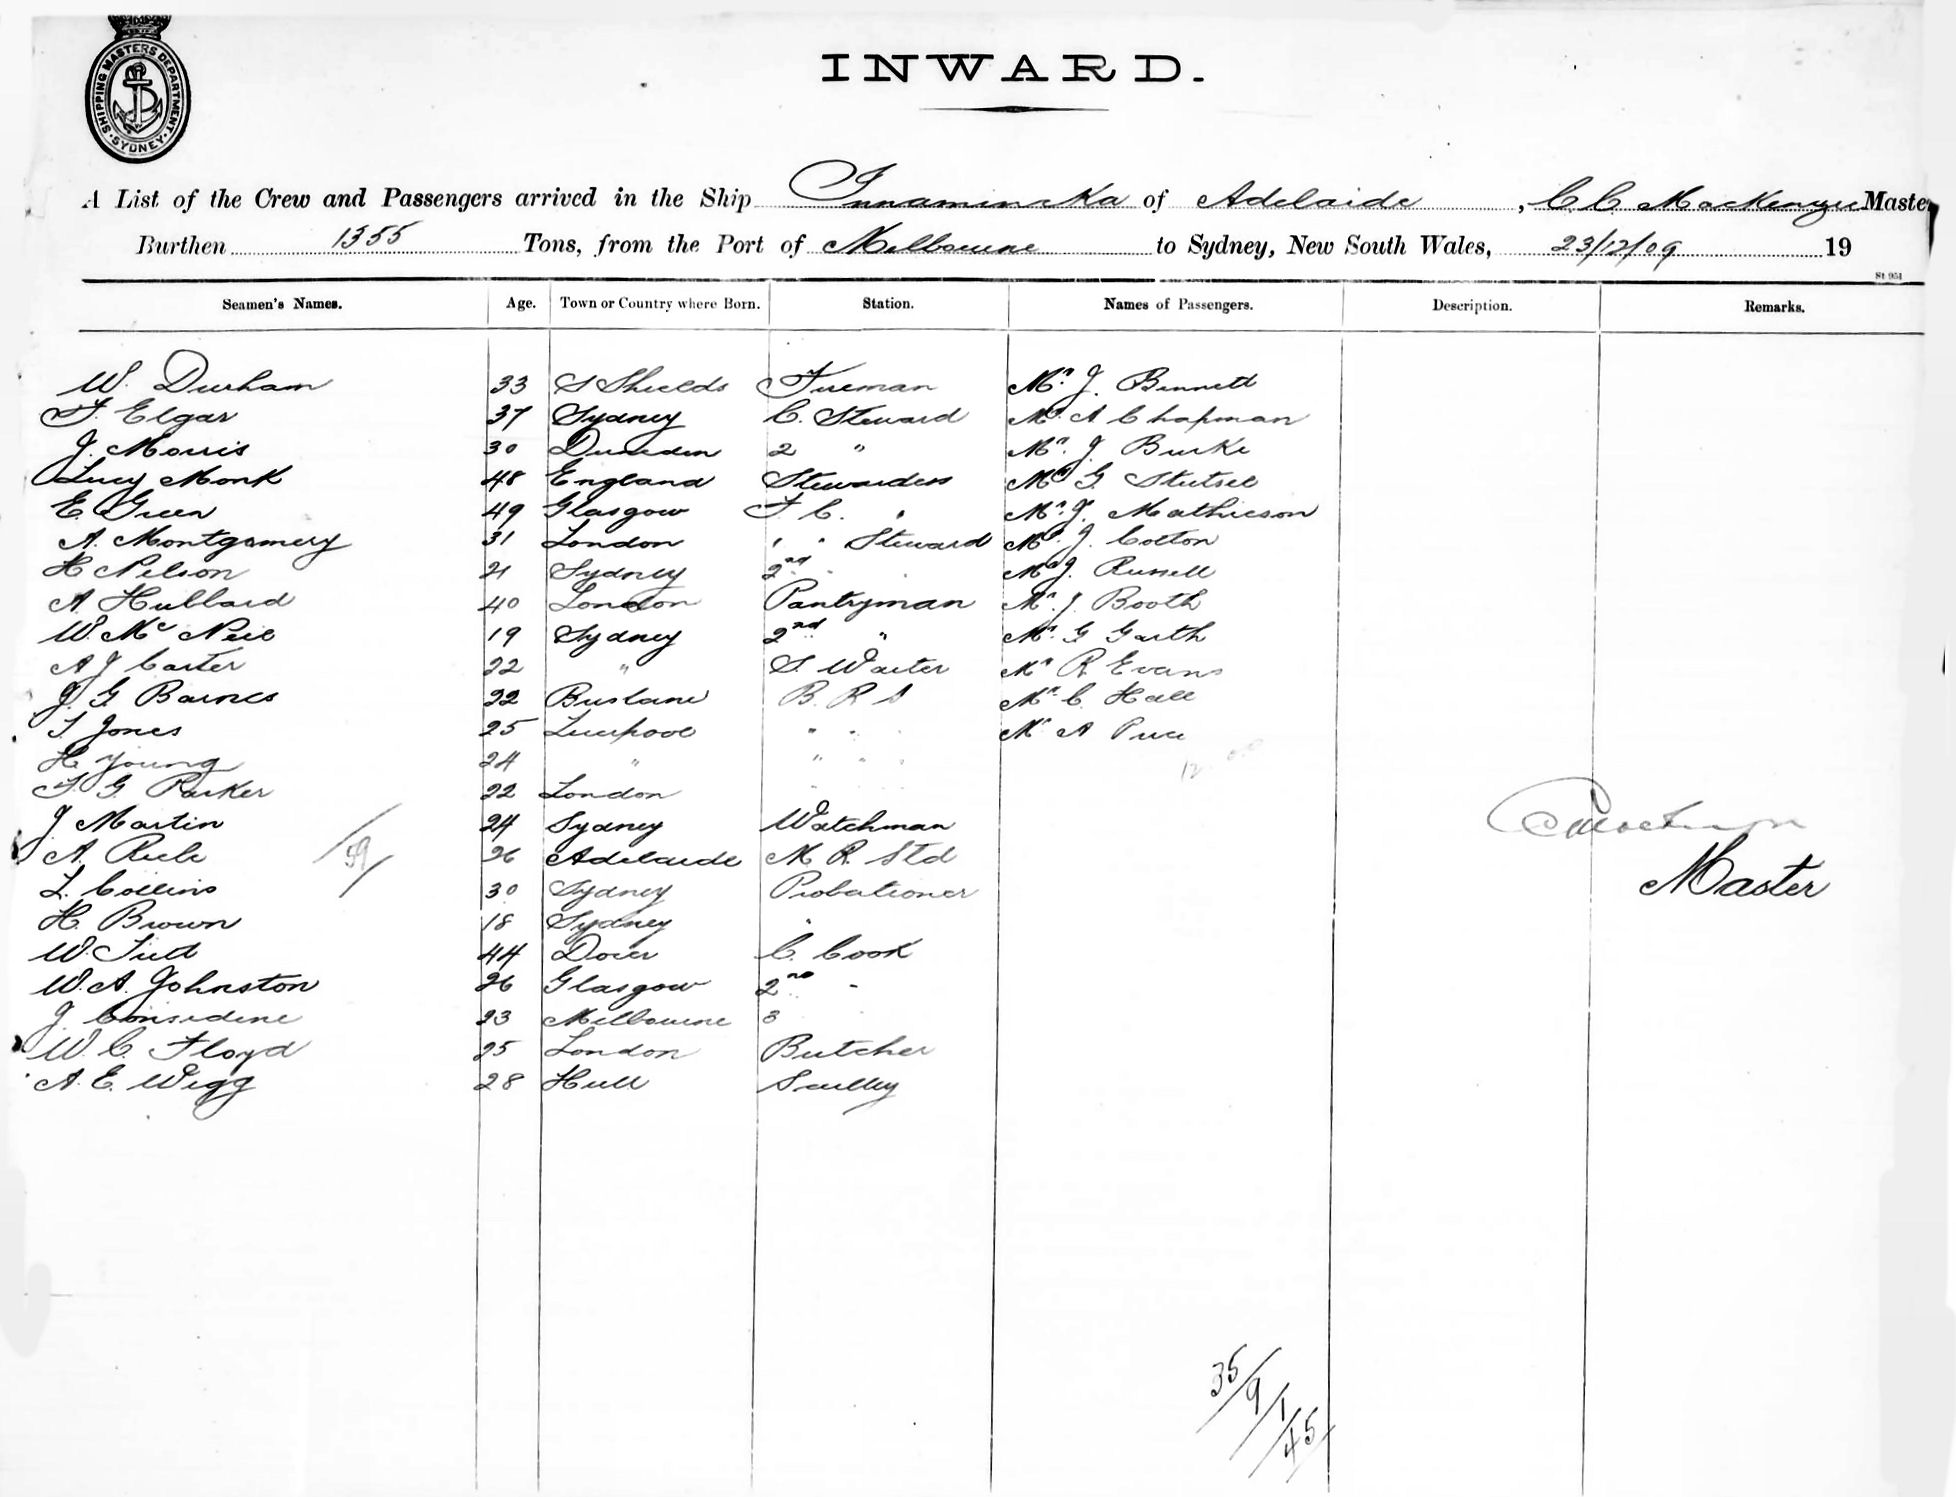 SHIPPING MASTERS DEPARTMENT
SYDNEY
INWARD.
A List of the Crew and Passengers arrived in the Ship Innamincka of Adelaide, C.C. Mackenzie Master
Burthen 1355 Tons, from the Port of Melbourne to Sydney, New South Wales, 23/12/09 19
St 951
Seamen's Names. Age. Town or Country where Born. Station. Names of Passengers. Description. Remarks.
W. Durham 33 S Shields Fireman Mr. J. Bennett
F. Elgar 37 Sydney C. Steward A Chapman
J. Morris 30 Dunedin 2 " Mr. J. Burke
Lucy Monk 48 England Stewardess G.
E. Green 49 Glasgow F. C. " Mr. J. Mathieson
A. Montgomery 31 London " " Steward J. Colton
H Nelson 21 Sydney 2nd " " J. Russell
A. Hubbard 40 London Pantryman Mr. J. Booth
W. Mc Neil 19 Sydney 2nd " Mr. G Garth
A J Carter 22 " S. Waiter Mr R Evans
J. G Barnes 22 Brisbane B. R S Mr. C. Hall
T Jones 25 Liverpool " " " Mr A Price
H Young 24 " " " "
F. G Parker 22 London
J Martin 24 Sydney Watchman
A. 26 Adelaide M R. Std
59
L. Collins 30 Sydney Probationer
Master
H. Brown 18 Sydney "
W. 44 Dover C. Cook
W. A. Johnston 26 Glasgow 2nd "
J. Considine 23 Melbourne 3
W. C. Floyd 25 London Butcher
A. E. Wigg 28 Hull Scullery
35/9/1/45